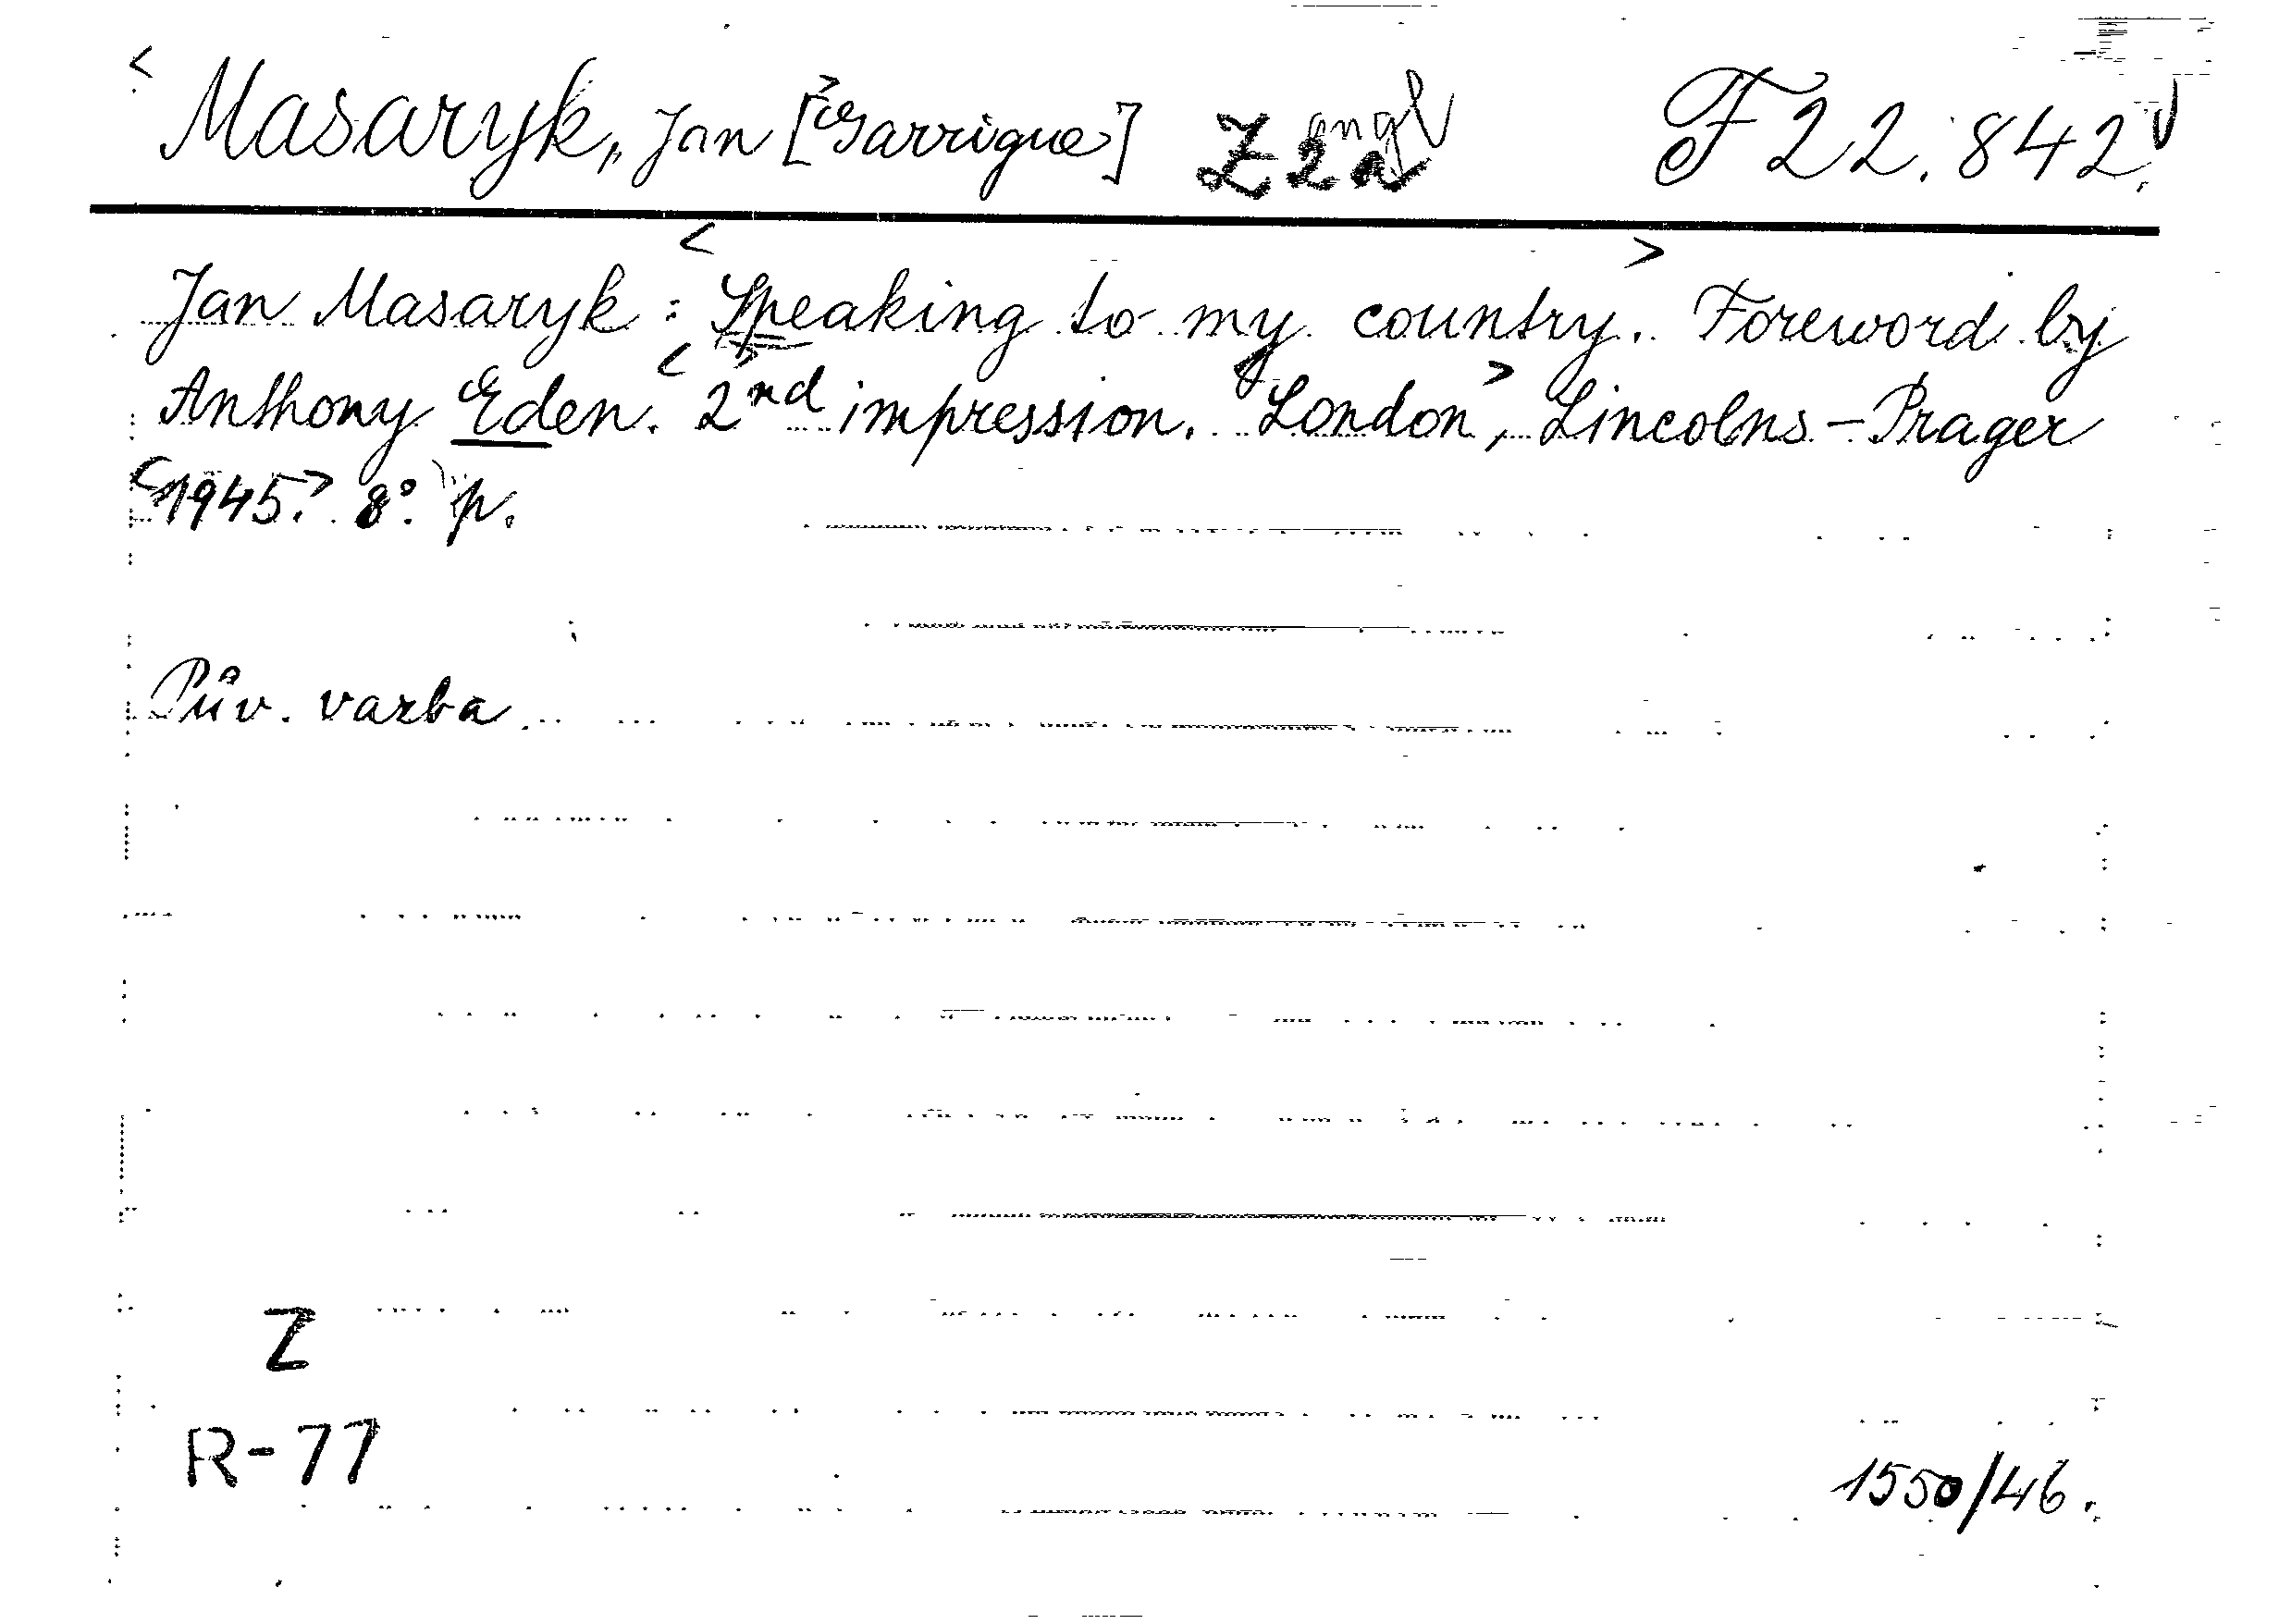 <Masaryk, Jan [Garrigue]> Z 2a angl F 22.842
Jan Masaryk: <Speaking to my country.> Foreword by
Anthony Eden. <2nd> impression. <London>, Lincolns-Prager
<1945.> 8°. p.
Pův. vazba
Z
R-77
1550/46.